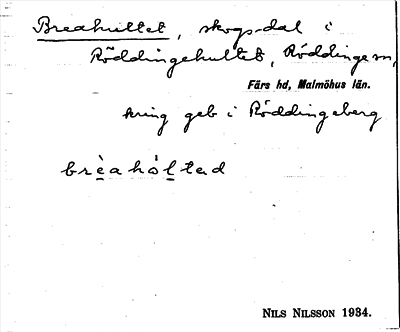 Breahultet, skogsdal i
Röddingehultet, Röddinge sn,
Färs hd, Malmöhus län.
kring geb i Röddingeberg
brèahól̲təd
NILS NILSSON 1934.